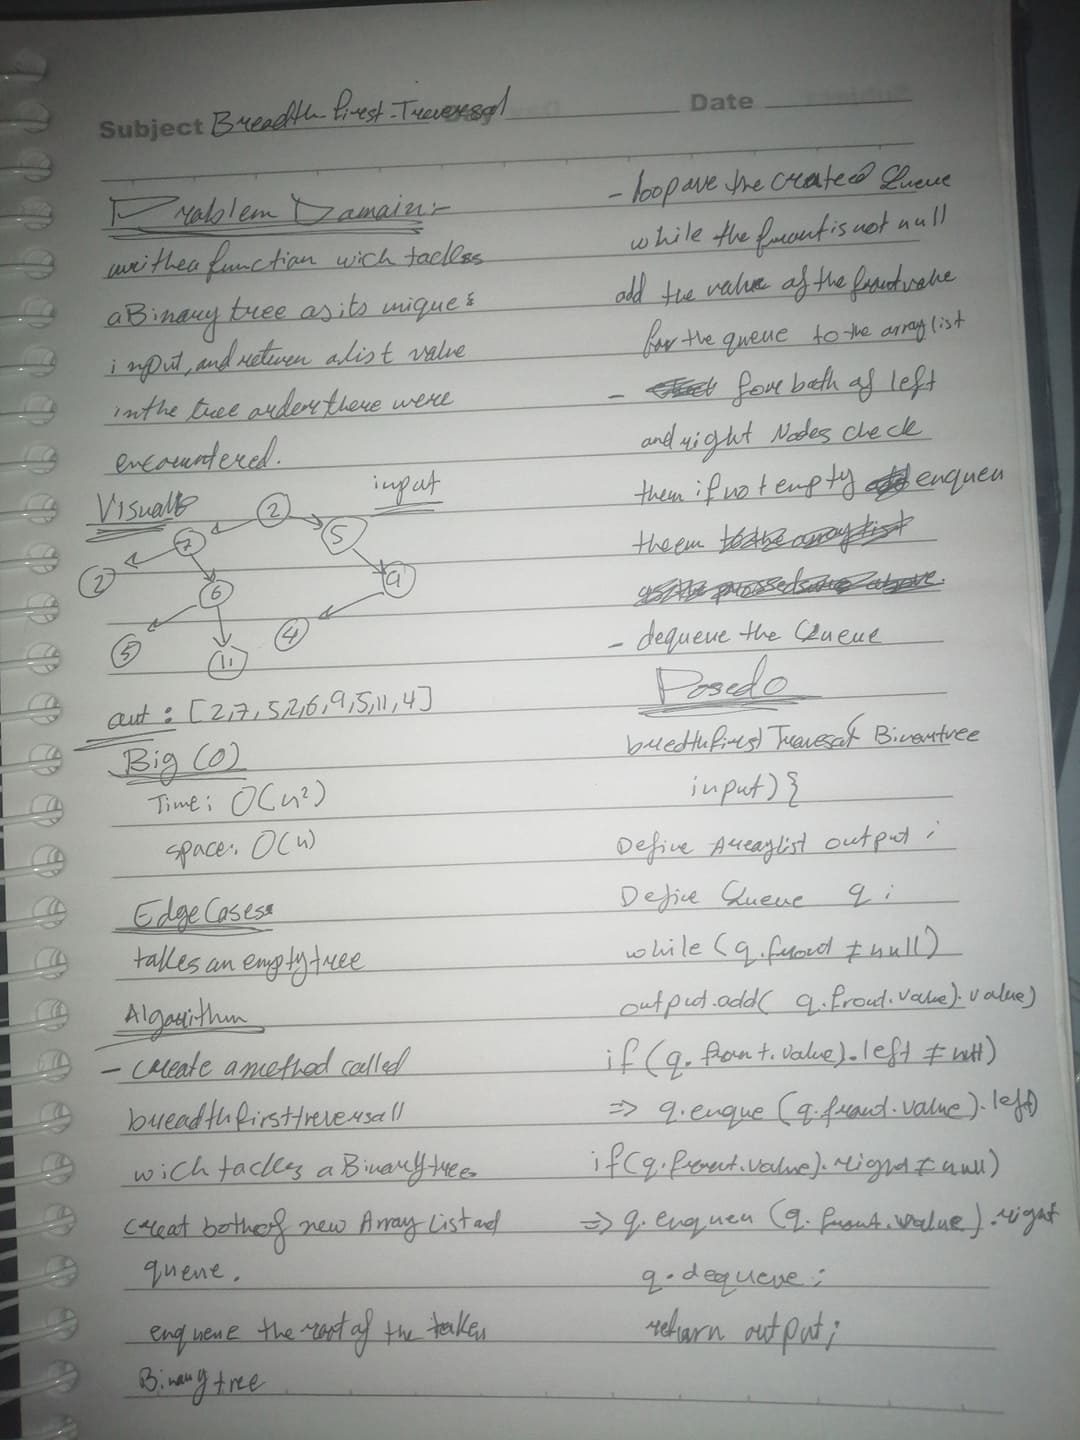 Subject Breadth first-Traversal
Date
Problem Domain:-
writhea function wich tackes
a Binary tree as its unique
input, and return a list value
in the tree order there were
encountered.
Visualt
input
2
7
5
2
6
9
5
11
4
out : [2,7,5,2,6,9,5,11,4]
Big (O)
Time: O(n²)
space: O(n)
Edge Cases
takes an empty tree
Algorithm
- create a method called
breadthfirsttreversall
wich tackes a Binary tree
creat both of new Array List and
queue.
enqueue the root of the taken
Binary tree
- loop ove the created Queue
while the front is not null
add the value of the front value
for the queue to the array list
- fore both of left
and right Nodes check
them if not empty enqueu
theem
- dequeue the Queue
Posedo
breedthfirst Traversal( Binarytree
input) }
Define Arraylist output ;
Define Queue q ;
while (q.front ≠ null)
output.add( q.front.value).value)
if (q.front.value).left ≠ null)
=> q.enque (q.front.value).left)
if(q.front.value).right ≠ null)
=> q.enqueu (q.front.value).right
q.dequeue ;
return output;